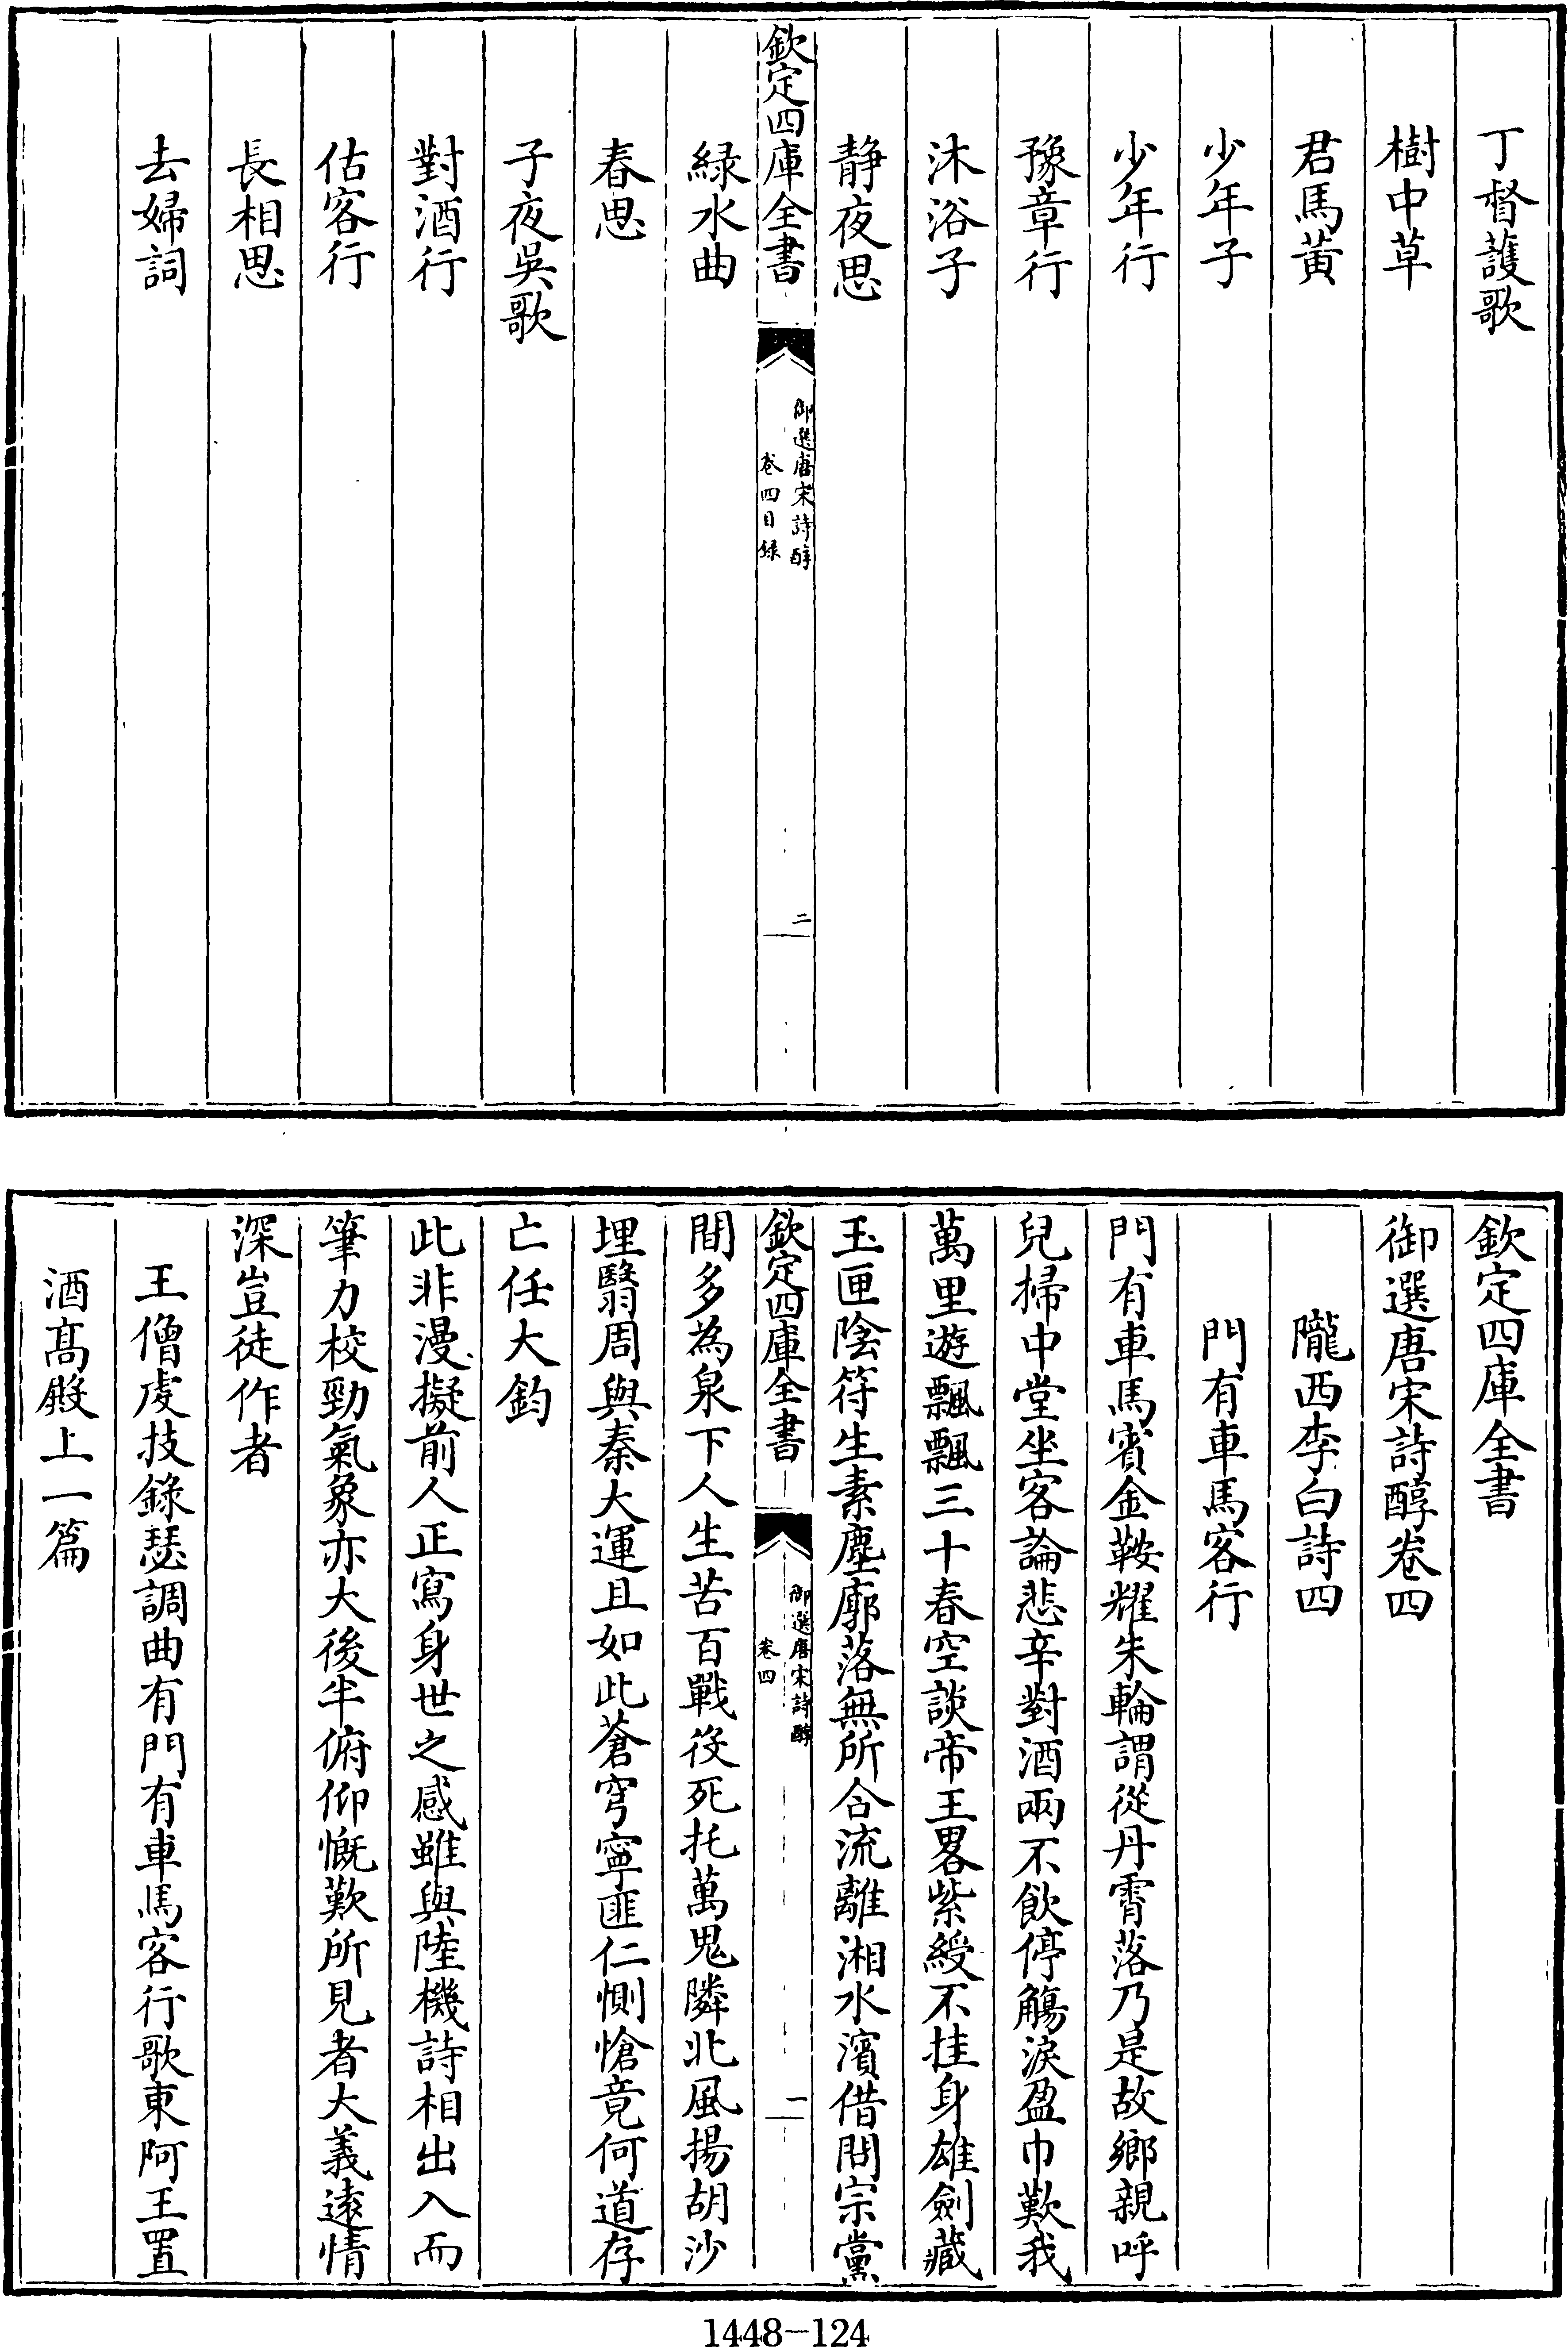 丁督䕶歌
樹中草
君馬黃
少年子
少年行
豫章行
沐浴子
静夜思
欽定四庫全書
御選唐宋詩醇
卷四目録
二
緑水曲
春思
子夜吳歌
對酒行
估客行
長相思
去婦詞
欽定四庫全書
御選唐宋詩醇卷四
隴西李白詩四
門有車馬客行
門有車馬賓金鞍耀朱輪謂從丹霄落乃是故鄉親呼
兒掃中堂坐客論悲辛對酒兩不飲停觴淚盈巾歎我
萬里遊飄飄三十春空談帝王畧紫綬不挂身雄劍藏
玉匣陰符生素塵廓落無所合流離湘水濱借問宗黨
欽定四庫全書
御選唐宋詩醇
卷四
一
間多為泉下人生苦百戰役死托萬鬼隣北風揚胡沙
埋翳周與秦大運且如此蒼穹寧匪仁惻愴竟何道存
亡任大鈞
此非漫擬前人正寫身世之感雖與陸機詩相出入而
筆力校勁氣象亦大後半俯仰慨歎所見者大義逺情
深豈徒作者
王僧虔技錄瑟調曲有門有車馬客行歌東阿王置
酒髙殿上一篇
1448-124